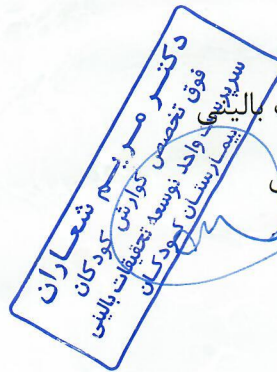 دکتر مریم شعاران
فوق تخصص گوارش کودکان
سرپرست واحد توسعه تحقیقات بالینی
بیمارستان کودکان
بالینی